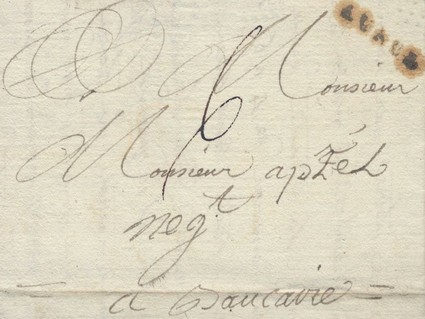 Monsieur
6
Monsieur apZéL
negt
a Baucaire